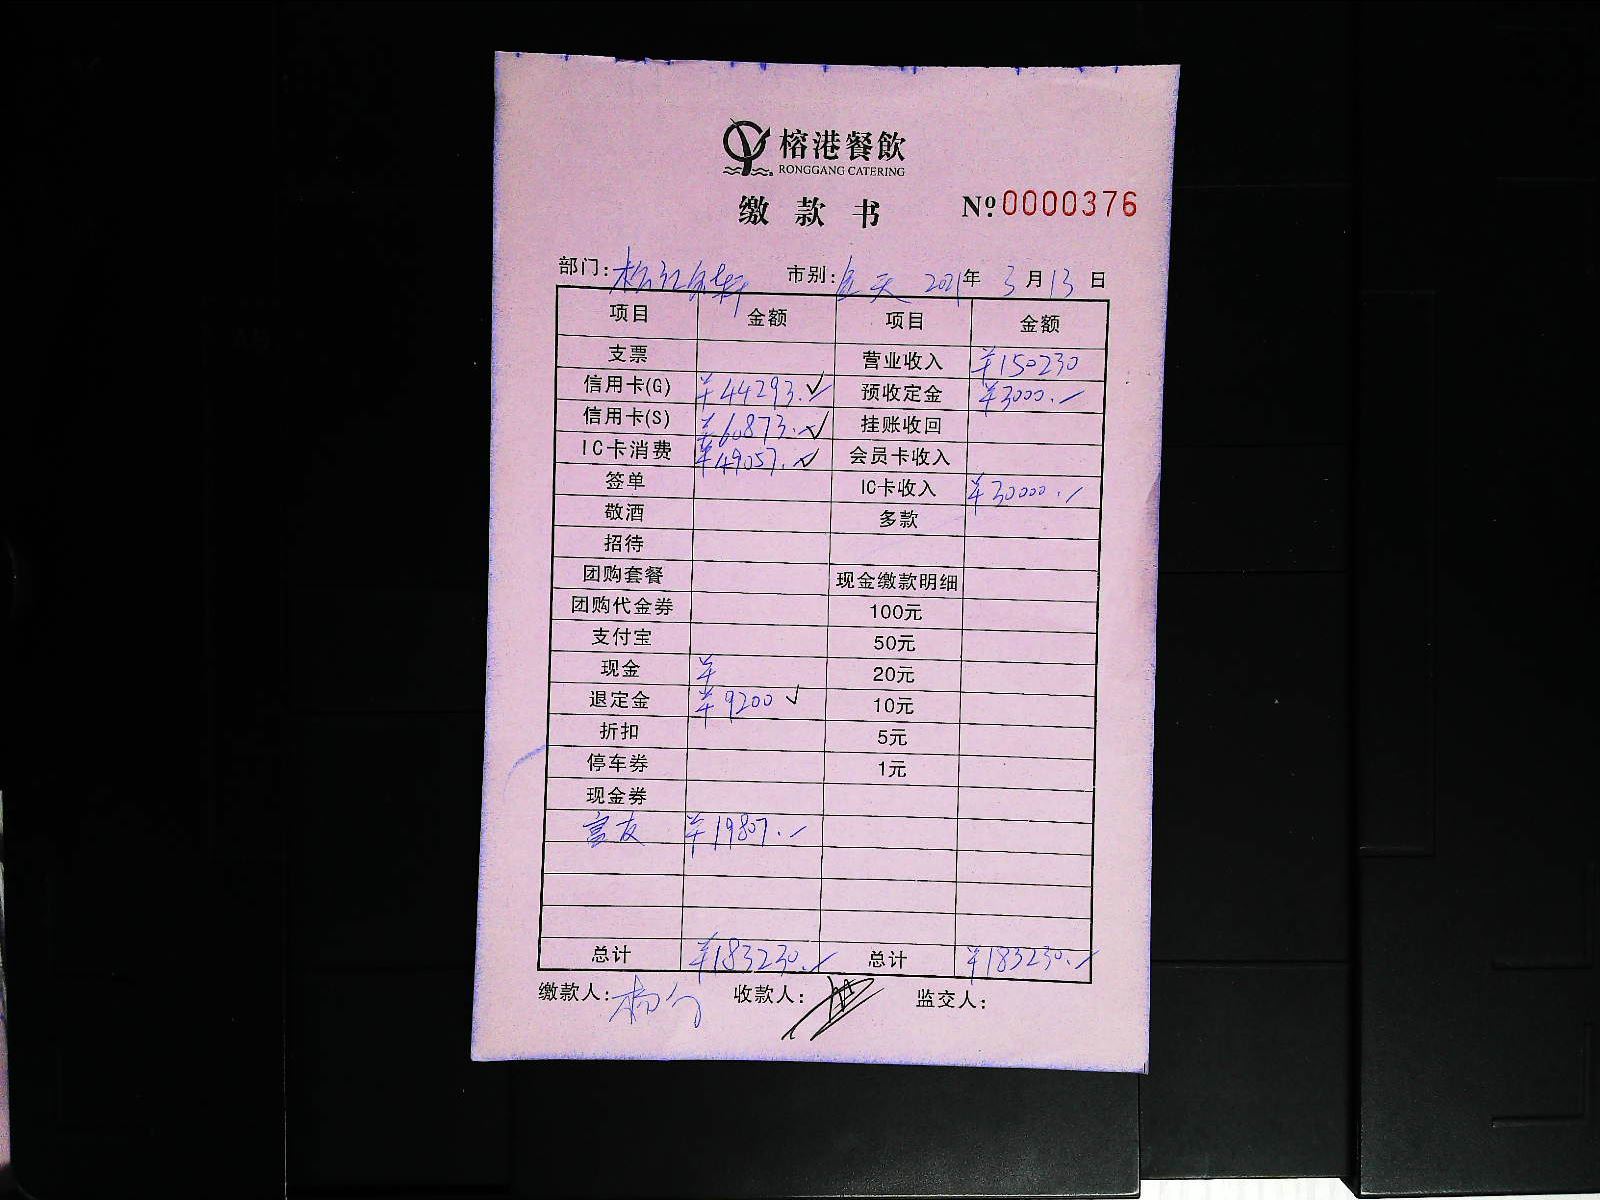 榕港餐飲
RONGGANG CATERING
缴款书 № 0000376
部门: 市别: 全天 2021年 3月13日
项目 金额 项目 金额
支票 营业收入 ¥150230
信用卡(G) ¥44293.✓ 预收定金 ¥3000.-
信用卡(S) ¥60873.✓ 挂账收回
IC卡消费 ¥49057.✓ 会员卡收入
签单 IC卡收入 ¥30000.-
敬酒 多款
招待
团购套餐 现金缴款明细
团购代金券 100元
支付宝 50元
现金 ¥ 20元
退定金 ¥9200 ✓ 10元
折扣 5元
停车券 1元
现金券
富友 ¥19807.-
总计 ¥183230.- 总计 ¥183230.-
缴款人: 收款人: 监交人: